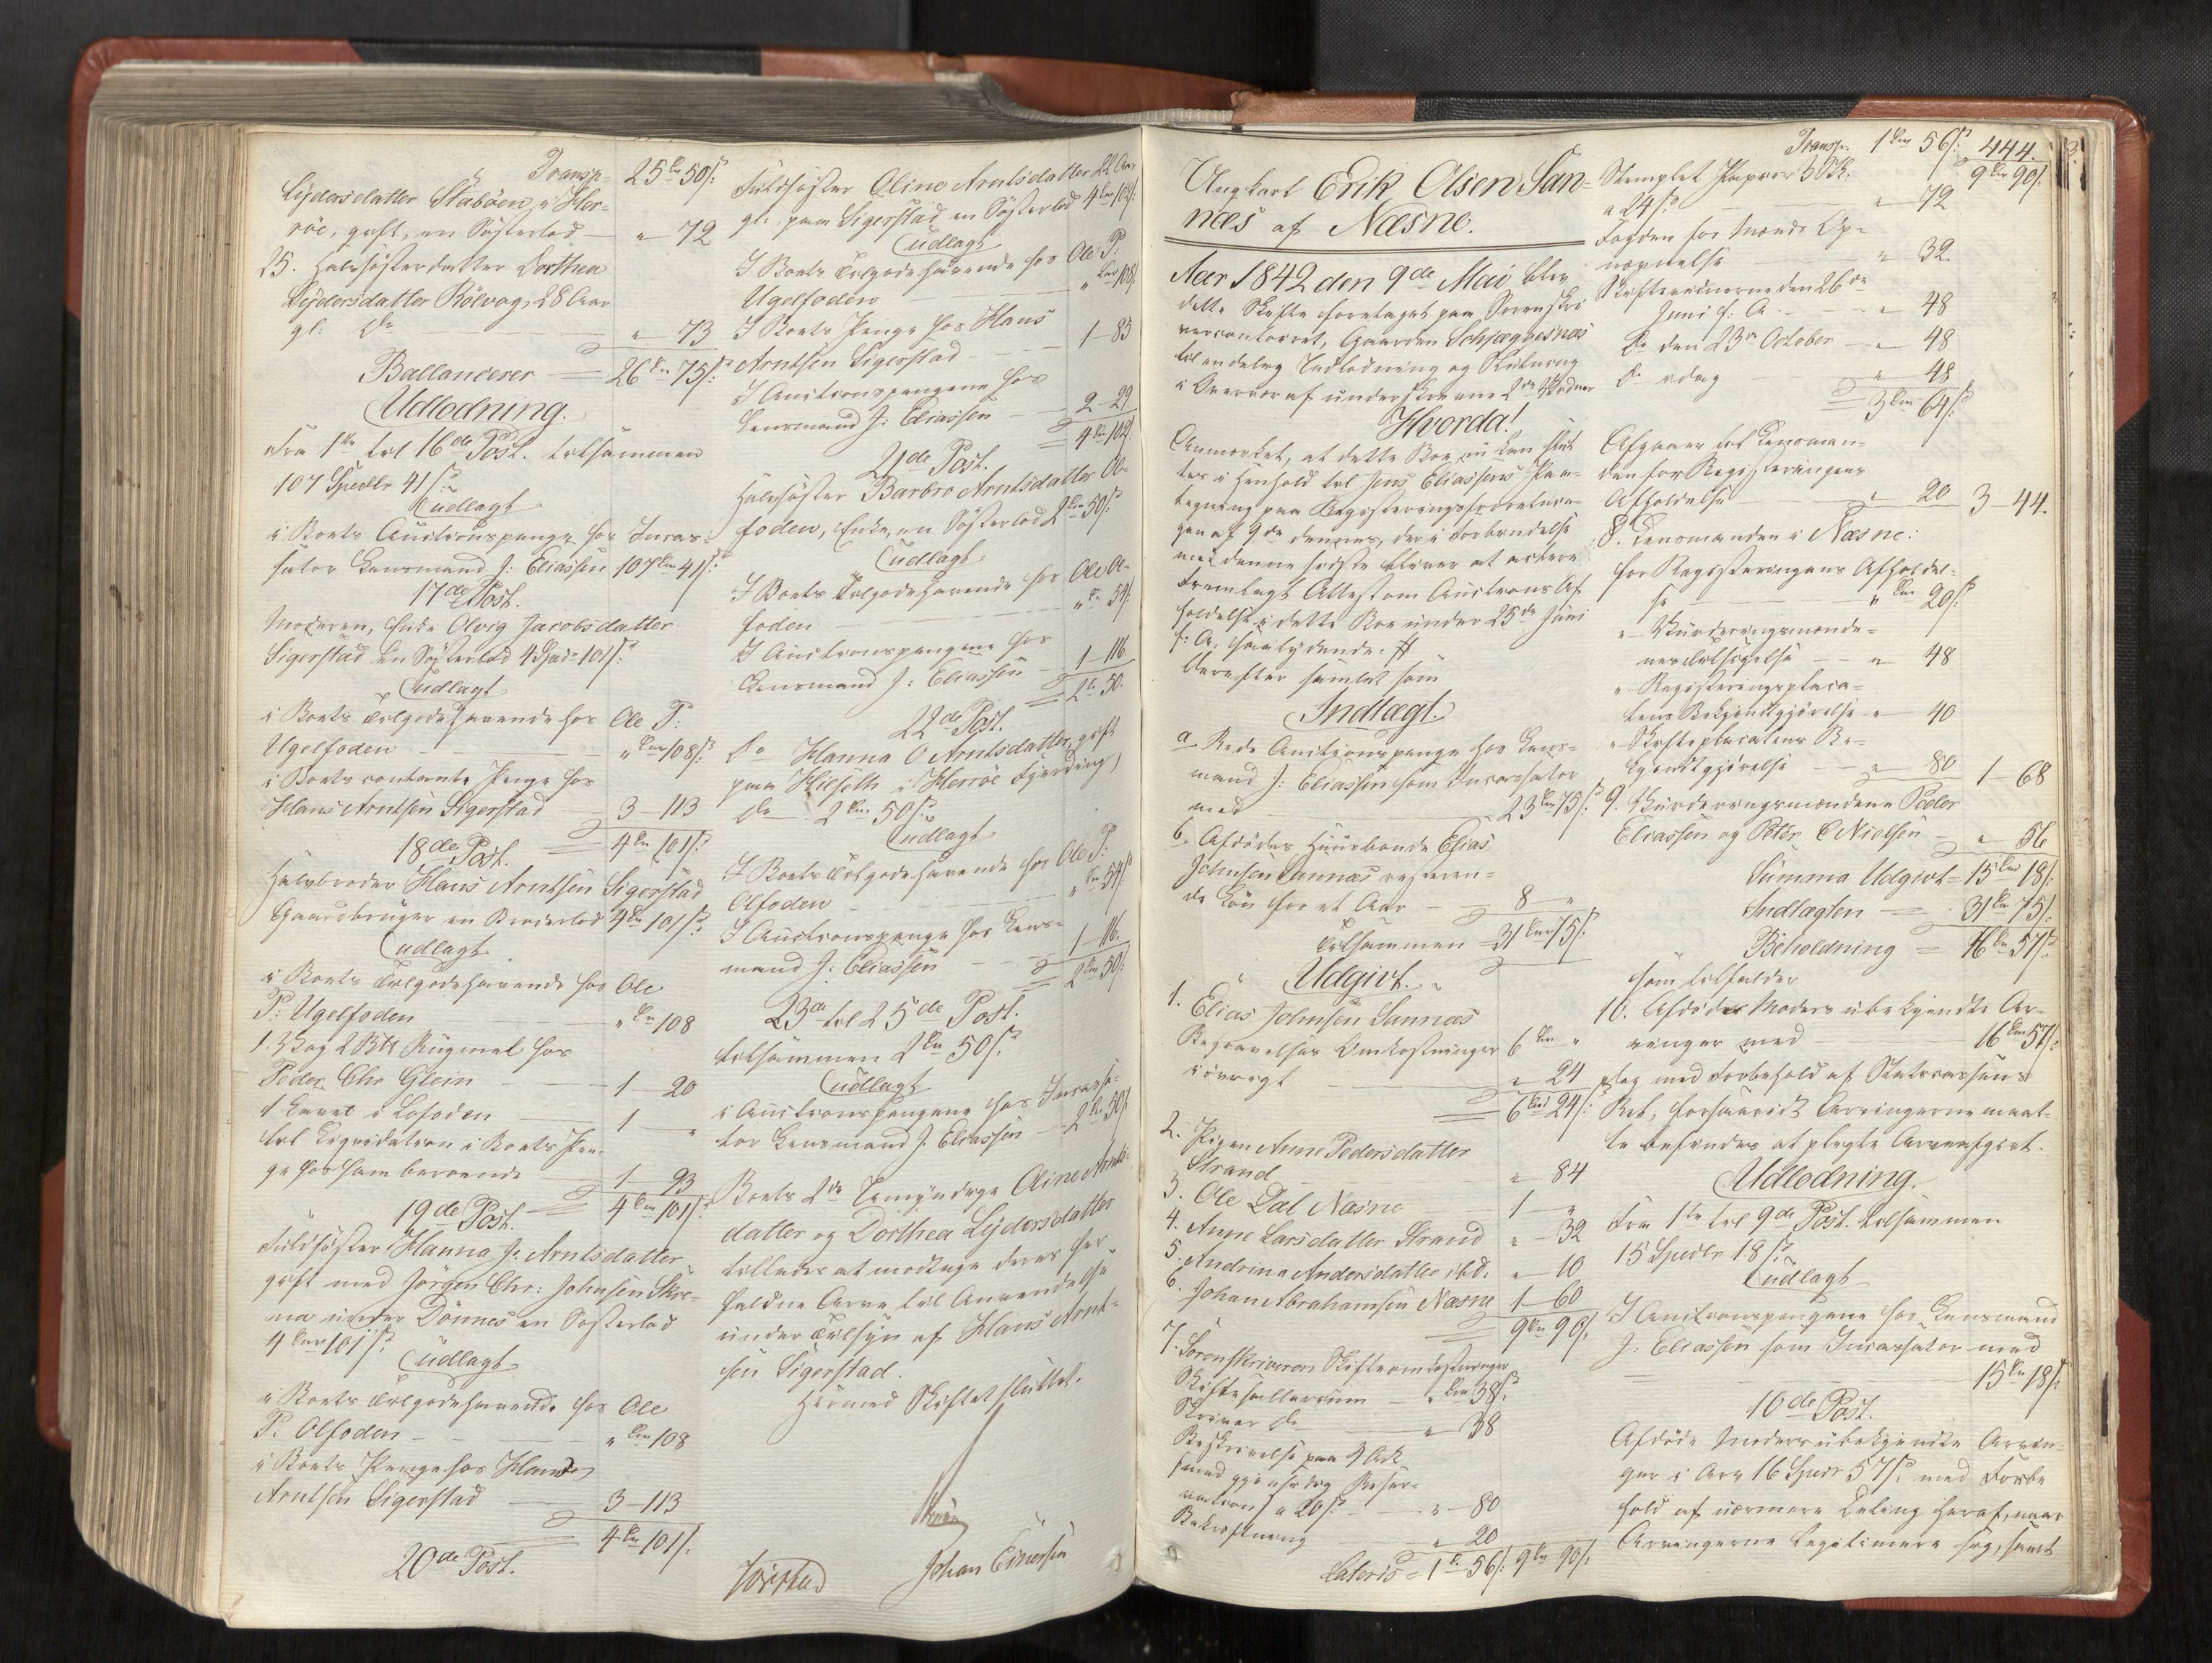 Transp= 25 Sp 50 ß:
Lydersdatter Stabøen, i Her-
röe, gift, en Søsterlod — " 72
25. Halvsøsterdatter Dorthea
Lydersdatter Rölvog, 28 Aar
gl: do — " 73
Ballancerer = 26 Sp 75 ß:
Udlodning.
Fra 1ste til 16de Post. tilsammen
107 Spedlr 41 ß.
Udlagt
i Boets Auctionspenge hos Incas-
sator Lensmand J: Eliassen 107 Sp 41 ß:
17de Post.
Moderen, Enke Olvig Jacobsdatter
Sigerstad en Søsterlod 4 Spd 101 ß:
Udlagt
i Boets Tilgodehavende hos Ole P:
Ugelfoden — " 108 ß:
i Boets contante Penge hos
Hans Arntsen Sigerstad — 3 - 113
= 4 Sp 101 ß:
18de Post.
Halvbroder Hans Arntsen Sigerstad
Gaardbruger en Broderlod 4 Sp 101 ß.
Udlagt
i Boets Tilgodehavende hos Ole
P: Ugelfoden — " 108
1 Vog 2 Bdt Rugmel hos
Peder Chr Glein — 1 - 20
1 Lavet i Lofoden — 1 - "
til Liqvidation i Boets Pen-
ge hos ham beroende — 1 - 93
= 4 Sp 101 ß:
19de Post.
Fuldsøster Hanna J: Arntsdatter
gift med Jörgen Chr: Johnsen Skre-
na under Dönnes en Søsterlod
4 Spd 101 ß.
Udlagt
i Boets Tilgodehavende hos Ole
P. Olfoden — " 108
i Boets Penge hos Hans
Arntsen Sigerstad — 3 - 113
= 4 Sp 101 ß.
20de Post.
Fuldsøster Oline Arntsdatter 22 Aar
gl: paa Sigerstad en Søsterlod 4 Sp 101 ß:
Udlagt
I Boets Tilgodehavende hos Ole P:
Ugelfoden — " 108
I Boets Penge hos Hans
Arntsen Sigerstad — 1 - 85
I Auctionspengene hos
Lensmand J: Eliassen — 2 - 29
= 4 Sp 102
21de Post.
Halvsøster Barbro Arntsdatter Ol-
foden, Enke, en Søsterlod 2 Sp 50 ß:
Udlagt
I Boets Tilgodehavende hos Ole Ol-
foden — " 54
I Auctionspengene hos
Lensmand J: Eliassen — 1 - 116
= 2 Sp 50.
22de Post.
do Hanna O Arntsdatter, gift
paa Hilseth i Herröe Fjerding,
do 2 Sp 50 ß.
Udlagt
I Boets Tilgodehavende hos Ole P:
Olfoden — " 54 ß
I Auctionspenge hos Lens-
mand J: Eliassen — 1 - 116.
= 2 Sp 50
23de til 25de Post.
tilsammen 2 Sp 50 ß.
Udlagt
i Auctionspengene hos Incassa-
tor Lensmand J. Eliassen — 2 Sp 50 ß
Boets 2de Umyndige Oline Arnts-
datter og Dorthea Lydersdatter
tillades at modtage deres her
faldne Arve til Anvendelse
under Tilsyn af Hans Arnt-
sen Sigerstad.
Hermed Skiftet sluttet.
Johan Einersen
444.
Ungkarl Erik Olsen San-
næs af Næsne.
Aar 1842 den 9de Mai blev
dette Skifte foretaget paa Sorenskri
vercontoiret, Gaarden Schjeggesnæs
til endelig Udlodning og Slutning
i Overvær af underskrevne 2de Vidner
Hvorda!
Anmærket, at dette Boe nu kan slut
tes i Henhold til Jens Eliassens Paa-
tegning paa Registeringsforretnin-
gen af 9de dennes, der i Forbindelse
med denne sidste bliver at actere
Fremlagt Attest om Auctions Af
holdelse i dette Boe under 25de Juni
f: A. saalydende. #
Derefter samlet som
Indtægt.
a Rede Auctionspenge hos Lens-
mand J: Eliassen som Incassator
med — 23 Sp 75 ß:
b. Afdødes Huusbonde Elias
Johnsen Sannæs resteren-
de Løn for et Aar — 8 - "
Tilsammen = 31 Sp 75 ß.
Udgivt.
1. Elias Johnsen Sannæs
Begravelses Omkostninger 6 Sp "
i øvrigt — " 24
= 6 Sp 24 ß:
2. Pigen Anne Pedersdatter
Strand — " 84
3. Ole Dal Næsne — 1 - "
4. Anne Larsdatter Strand " - 32
5. Andrina Andersdatter ibd. " - 10
6. Johan Abrahamsen Næsne 1 - 60
9 Sp 90 ß.
7. Sorenskriveren Skifteomkostninger
Skiftesallarium — " 38 ß
Skriver do — " 38
Beskrivelse paa 4 Ark
med gjenpart Reser-
vation a 20 ß — " 80
Bekræftning — " 20
Lateris = 1 Sp 56 ß. 9 Sp 90 ß.
Transp. 1 Sp 56 ß: 9 Sp 90 ß.
Stemplet Papir 3 Ark
a 24 ß. — " 72
Fogden for Mænds Op-
nævnelse — " 32
Skiftevidnerne den 26de
Juni f: A. — " 48
do den 23de October — " 48
do idag — " 48
= 3 Sp 64 ß:
Afgaaer til Lensman-
den for Registeringens
Afholdelse — " 20 3 - 44.
8. Lensmanden i Næsne:
for Registeringens Afholdel-
se — " 20 ß
" Vurderingsmænde-
nes Tilsigelse — " 48
" Registeringsplaca-
tens Bekjendtgjørelse " 40
" Skifteplacatens Be-
kjendtgjørelse — " 80 1 - 68
9. Vurderingsmændene Peder
Eliassen og Peter C Nielsen — " 56
Summa Udgivt = 15 Sp 18 ß.
Indtægten = 31 Sp 75 ß.
Beholdning = 16 Sp 57 ß.
som tilfalder
10. Afdødes Moders ubekjendte Ar-
vinger med — 16 Sp 57 ß:
dog med Forbehold af Statscassens
Ret, forsaavidt Arvingerne maat-
te befindes at pligte Arveafgivt.
Udlodning.
Fra 1ste til 9de Post. tilsammen
15 Spedlr 18 ß.
Udlagt
I Auctionspengene hos Lensmand
J: Eliassen som Incassator med
15 Sp 18 ß.
10de Post.
Afdøde Moders ubekjendte Arvin-
ger i Arv 16 Spdr 57 ß. med Forbe
hold af nærmere Deling heraf, naar
Arvingerne legitimere sig, samt